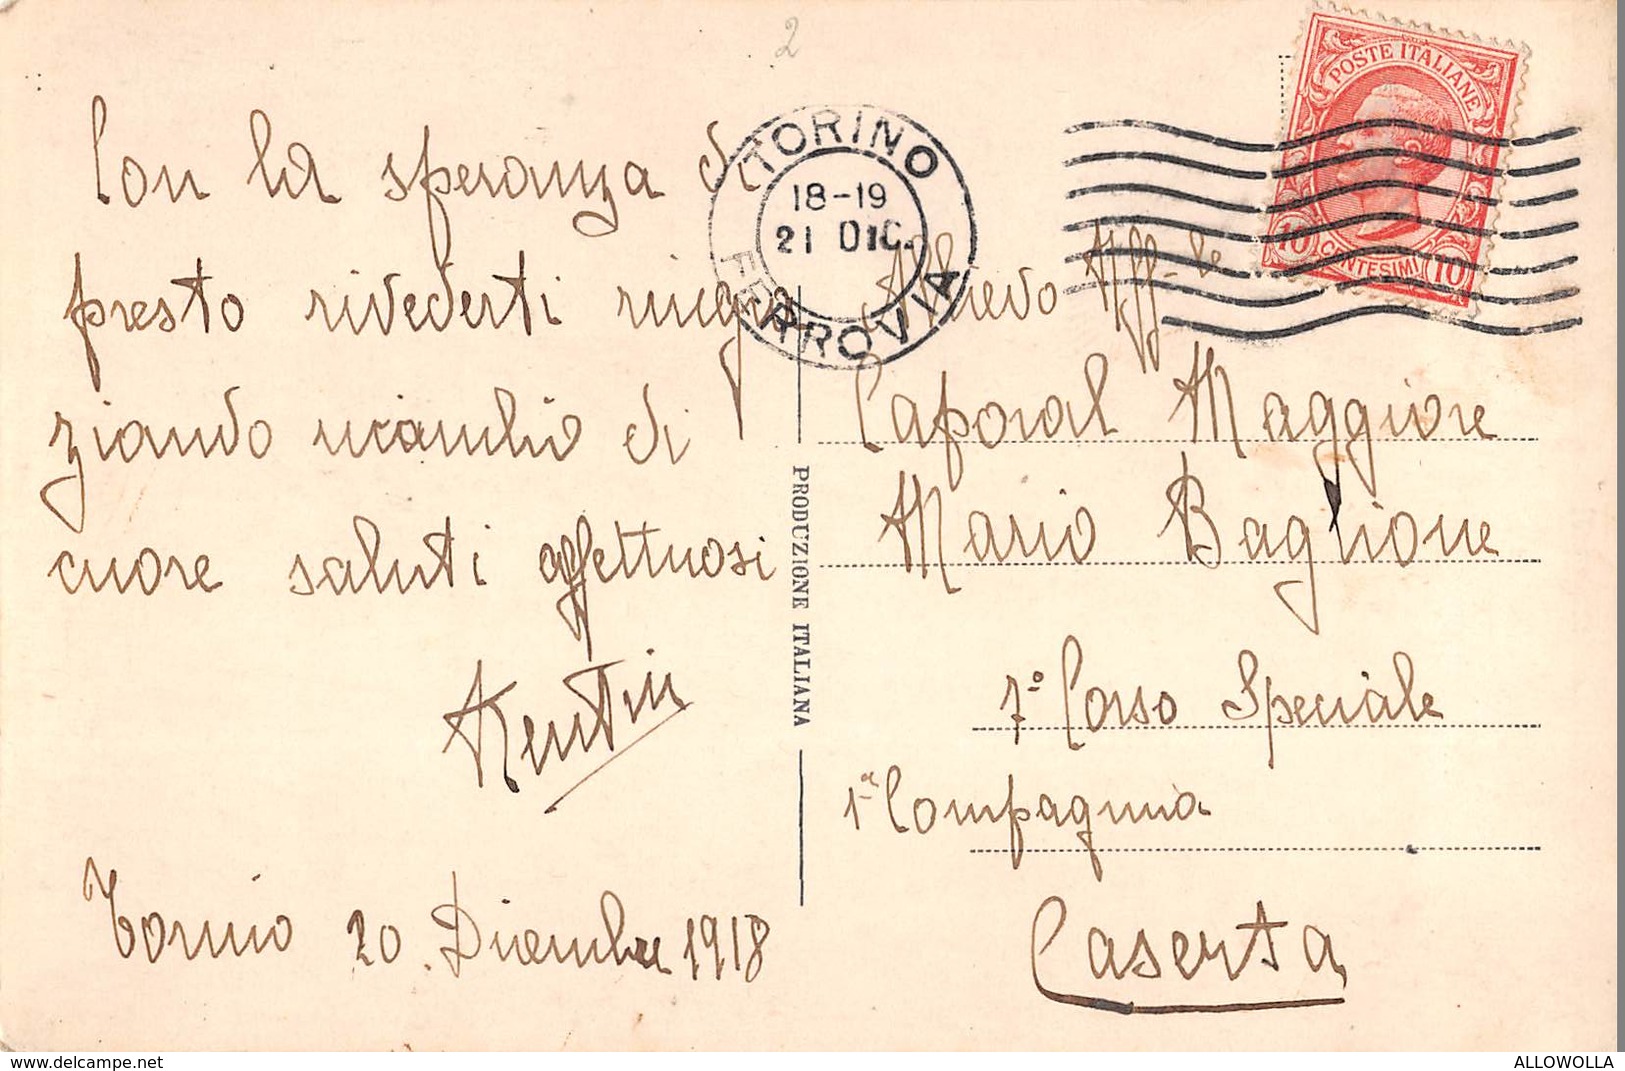 2
Con la speranza di
presto rivederti ringra
ziando ricambio di
cuore saluti affettuosi
Torino 20. Dicembre 1918
TORINO
18-19
21 DIC.
FERROVIA
POSTE ITALIANE
10 CENTESIMI 10
PRODUZIONE ITALIANA
Allievo Uff-le
Caporal Maggiore
Mario Baglione
7° Corso Speciale
1ª Compagnia
Caserta
https://www.delcampe.net
ALLOWOLLA